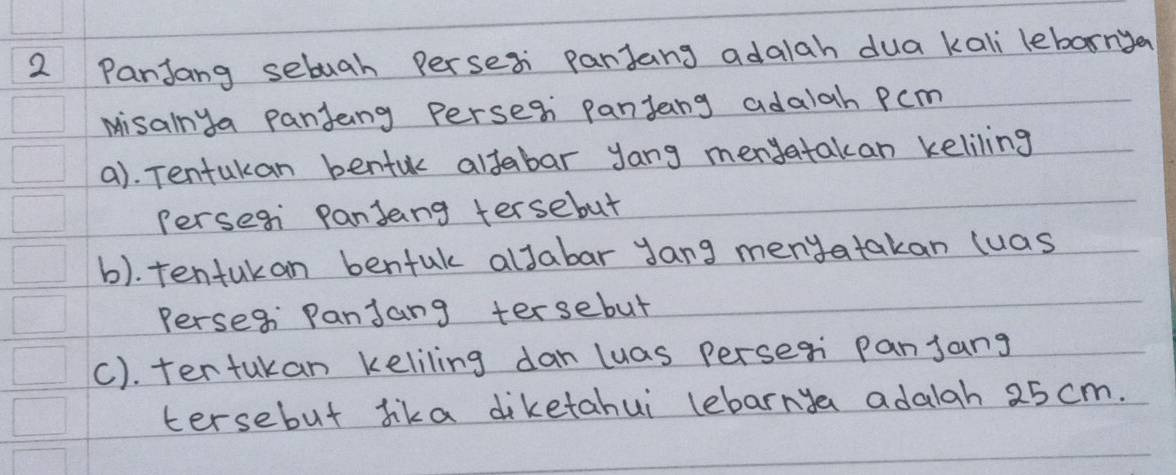 2 Panjang sebuah Persegi Panjang adalah dua kali lebarnya
Misalnya Panjang Persegi Panjang adalah Pcm
a). Tentukan bentuk aljabar yang menyatakan keliling
Persegi Panjang tersebut
b). Tentukan bentuk aljabar yang menyatakan luas
Persegi Panjang tersebut
c). tentukan keliling dan luas Persegi Panjang
tersebut jika diketahui lebarnya adalah 25 cm.